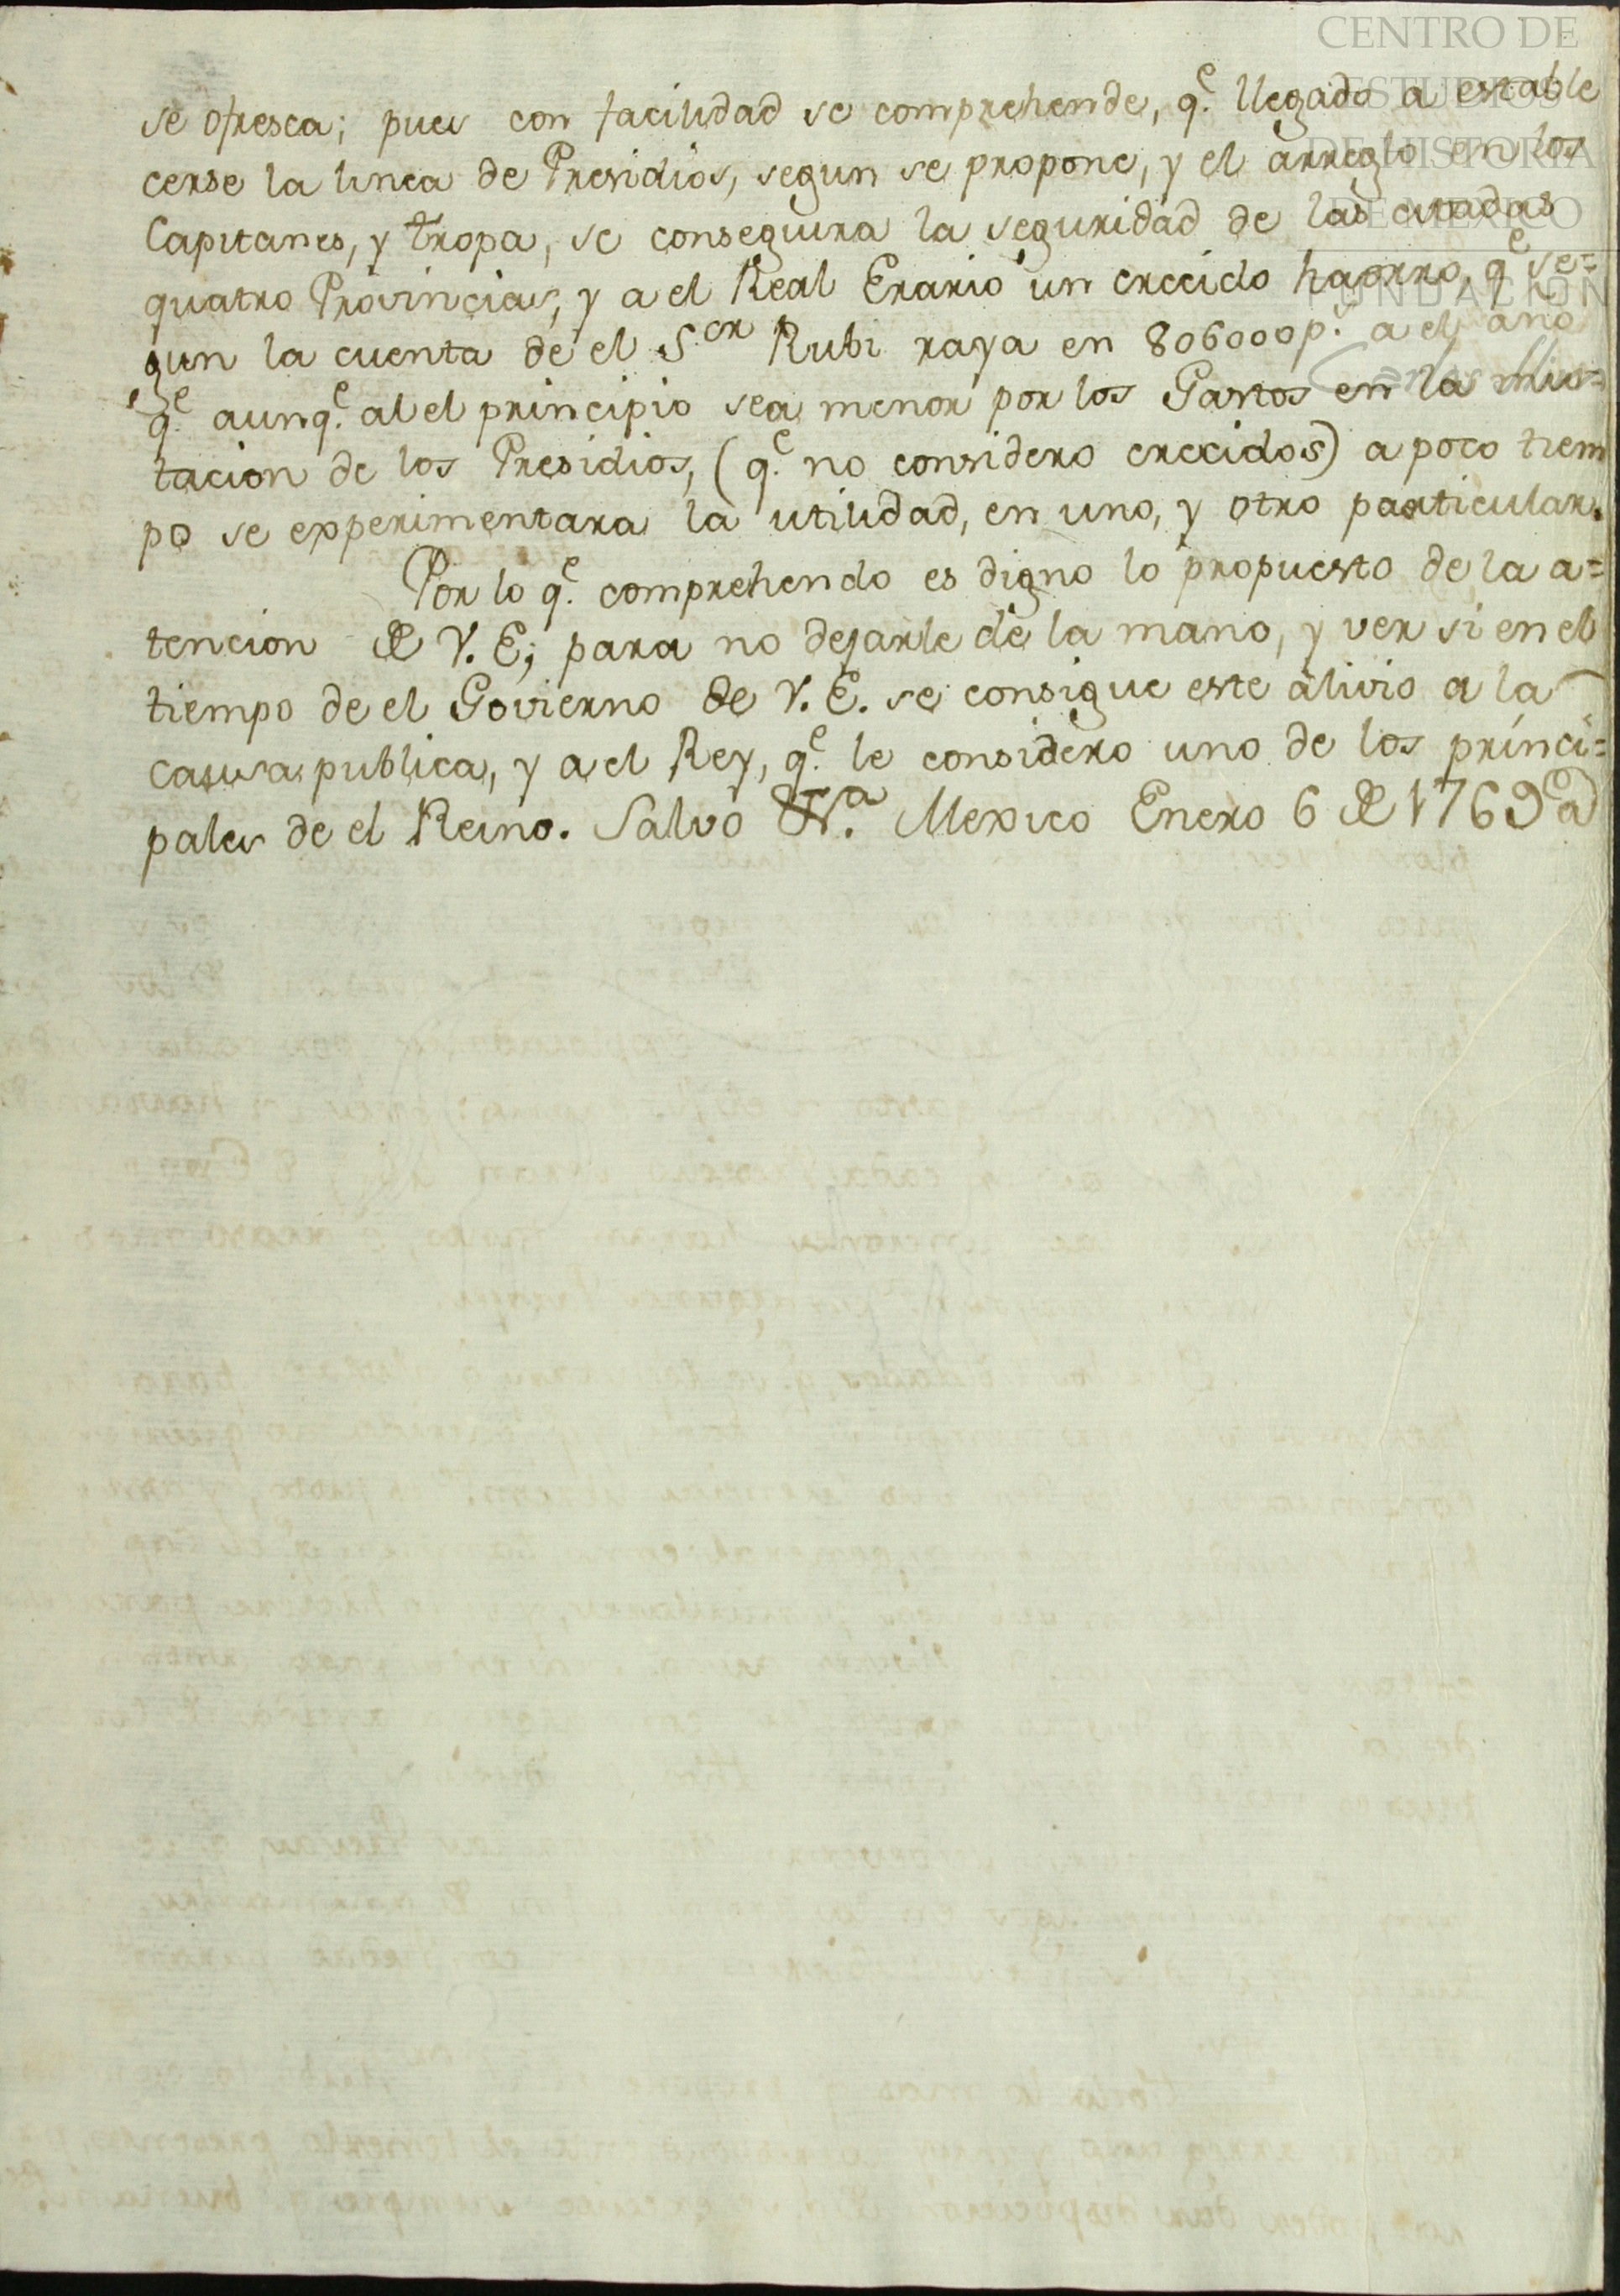 CENTRO DE
ESTUDIOS
DE HISTORIA
DE MEXICO
FUNDACIÓN
Carlos Slim
se ofresca; pues con facilidad se comprehende, q.e llegado a estable
cerse la linea de Presidios, segun se propone, y el arreglo en los
Capitanes, y tropa, se conseguira la seguridad de las citadas
quatro Provincias, y a el Real Erario un crecido haorro, q.e se=
gun la cuenta de el S.or Rubi raya en 806000p.s a el año
q.e aunq.e al el principio sea menor por los Gastos en la Mu=
tacion de los Presidios, (q.e no considero crecidos) a poco tiem
po se experimentara la utilidad, en uno, y otro particular.
Por lo q.e comprehendo es digno lo propuesto de la a=
tencion de V. E; para no dejarle de la mano, y ver si en el
tiempo de el Govierno de V. E. se consigue este alivio a la
causa publica, y a el Rey, q.e le considero uno de los princi=
pales de el Reino. Salvo &.a Mexico Enero 6 de 1769